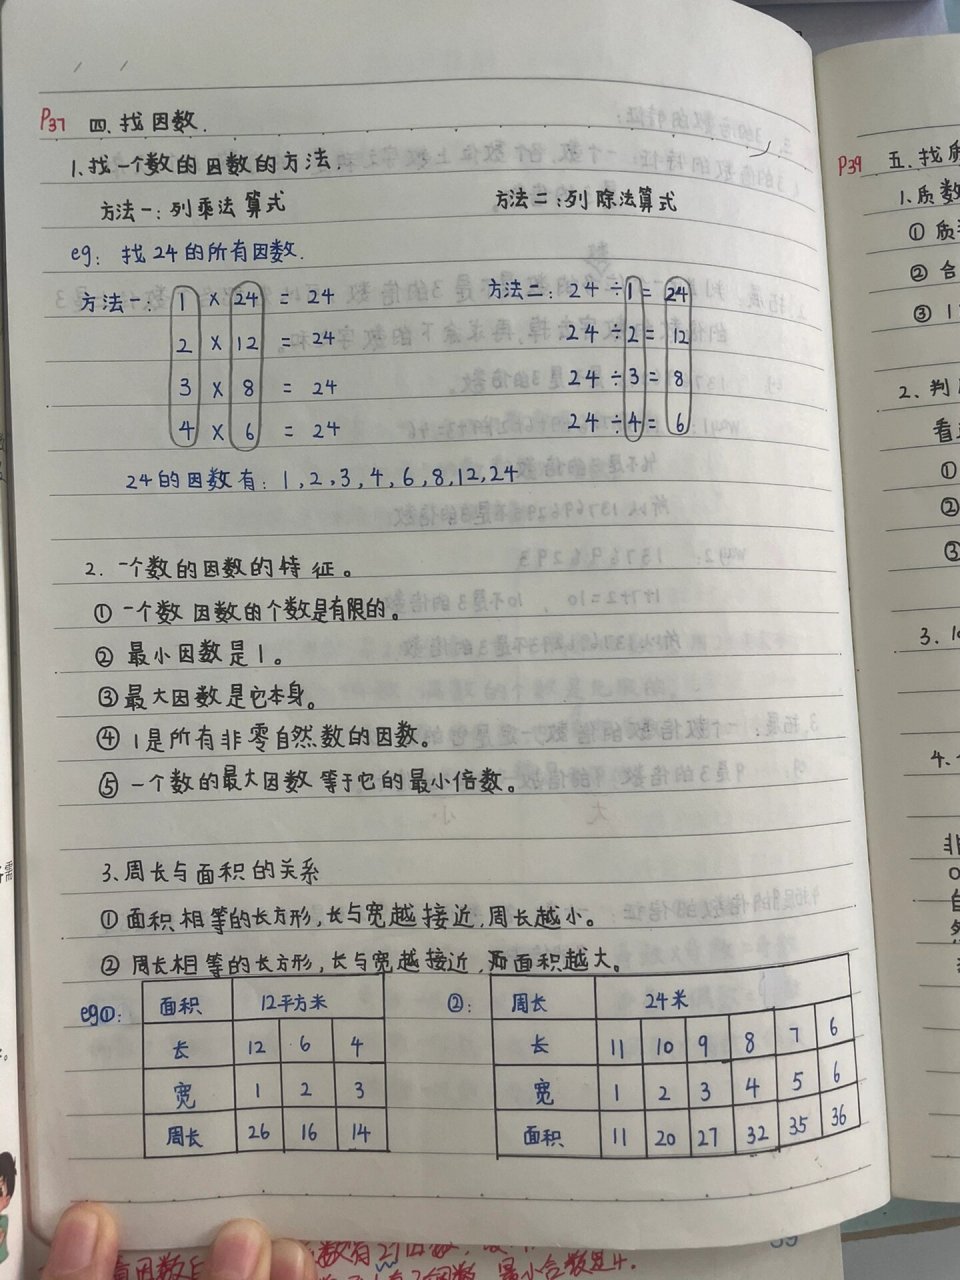 P37 四.找因数.
1.找一个数的因数的方法.
方法一:列乘法算式 方法二:列除法算式
eg: 找24的所有因数.
方法一: 1 × 24 = 24 方法二: 24 ÷ 1 = 24
2 × 12 = 24 24 ÷ 2 = 12
3 × 8 = 24 24 ÷ 3 = 8
4 × 6 = 24 24 ÷ 4 = 6
24的因数有: 1,2,3,4,6,8,12,24
2. 一个数的因数的特征。
① 一个数因数的个数是有限的。
② 最小因数是1。
③ 最大因数是它本身。
④ 1是所有非零自然数的因数。
⑤ 一个数的最大因数等于它的最小倍数。
3、周长与面积的关系
① 面积相等的长方形,长与宽越接近,周长越小。
② 周长相等的长方形,长与宽越接近,面积越大。
eg①: 面积 12平方米 ②: 周长 24米
长 12 6 4 长 11 10 9 8 7 6
宽 1 2 3 宽 1 2 3 4 5 6
周长 26 16 14 面积 11 20 27 32 35 36
P39 五.找质
1.质数
① 质
② 合
③ 1
2. 判
看
①
②
③
3.
4.
非
自
然
最小合数是4.